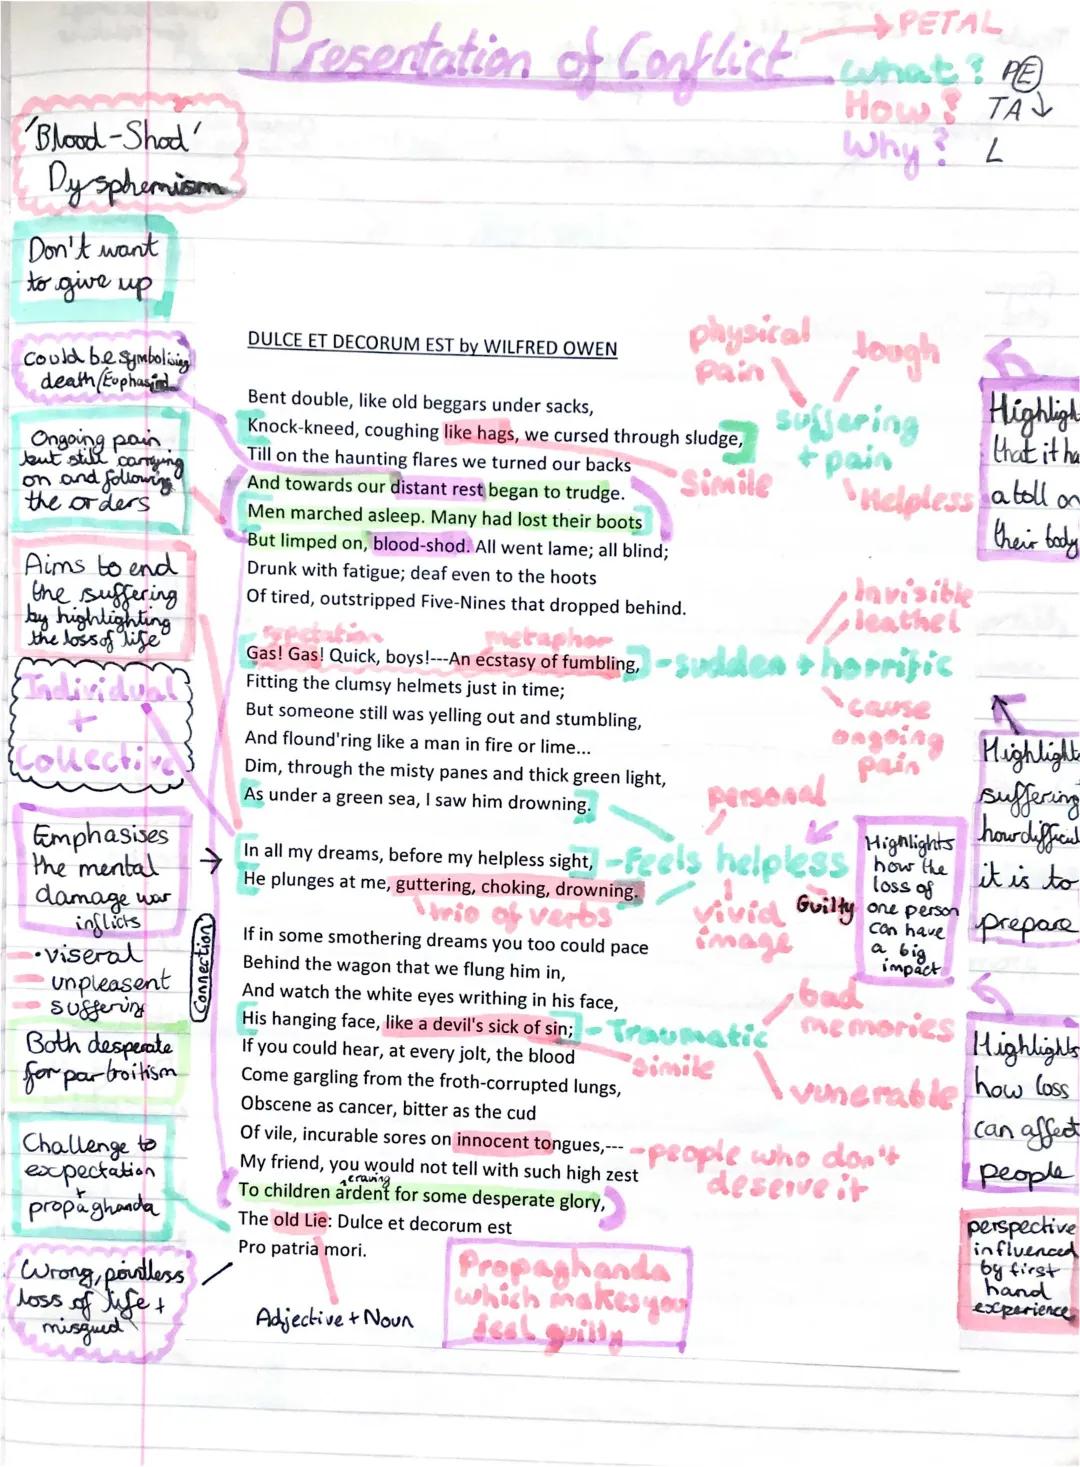 Presentation of Conflict
PETAL
What? PE
How? TA
Why? L
'Blood-Shod'
Dysphemism
Don't want
to give up
could be symbolising
death/Euphasim
Ongoing pain
but still carrying
on and following
the orders
Aims to end
the suffering
by highlighting
the loss of life
Individual
+
Collective
Emphasises
the mental
damage war
inflicts
• viseral
unpleasent
suffering
Both desperate
for partroitism
Challenge to
excpectation
+
propaghanda
Wrong, pointless
loss of life +
misgued
Connection
DULCE ET DECORUM EST by WILFRED OWEN
Bent double, like old beggars under sacks,
Knock-kneed, coughing like hags, we cursed through sludge,
Till on the haunting flares we turned our backs
And towards our distant rest began to trudge.
Men marched asleep. Many had lost their boots
But limped on, blood-shod. All went lame; all blind;
Drunk with fatigue; deaf even to the hoots
Of tired, outstripped Five-Nines that dropped behind.
metaphor
Gas! Gas! Quick, boys!---An ecstasy of fumbling,
Fitting the clumsy helmets just in time;
But someone still was yelling out and stumbling,
And flound'ring like a man in fire or lime...
Dim, through the misty panes and thick green light,
As under a green sea, I saw him drowning.
In all my dreams, before my helpless sight,
He plunges at me, guttering, choking, drowning.
trio of verbs
If in some smothering dreams you too could pace
Behind the wagon that we flung him in,
And watch the white eyes writhing in his face,
His hanging face, like a devil's sick of sin;
If you could hear, at every jolt, the blood
Come gargling from the froth-corrupted lungs,
Obscene as cancer, bitter as the cud
Of vile, incurable sores on innocent tongues,---
My friend, you would not tell with such high zest
craving
To children ardent for some desperate glory,
The old Lie: Dulce et decorum est
Pro patria mori.
Adjective + Noun
Propaghanda
which makes you
feel guilty
physical
pain
tough
suffering
+ pain
Simile
Helpless
Invisible
leathel
sudden + horrific
cause
ongoing
pain
personal
Feels helpless
vivid
image
Guilty
Highlights
how the
loss of
one person
can have
a big
impact
bad
memories
Traumatic
simile
vunerable
people who don't
deserve it
Highlight
that it ha
a toll on
their body
Highlight
suffering
how difficul
it is to
prepare
Highlights
how loss
can affect
people
perspective
influenced
by first
hand
excperience